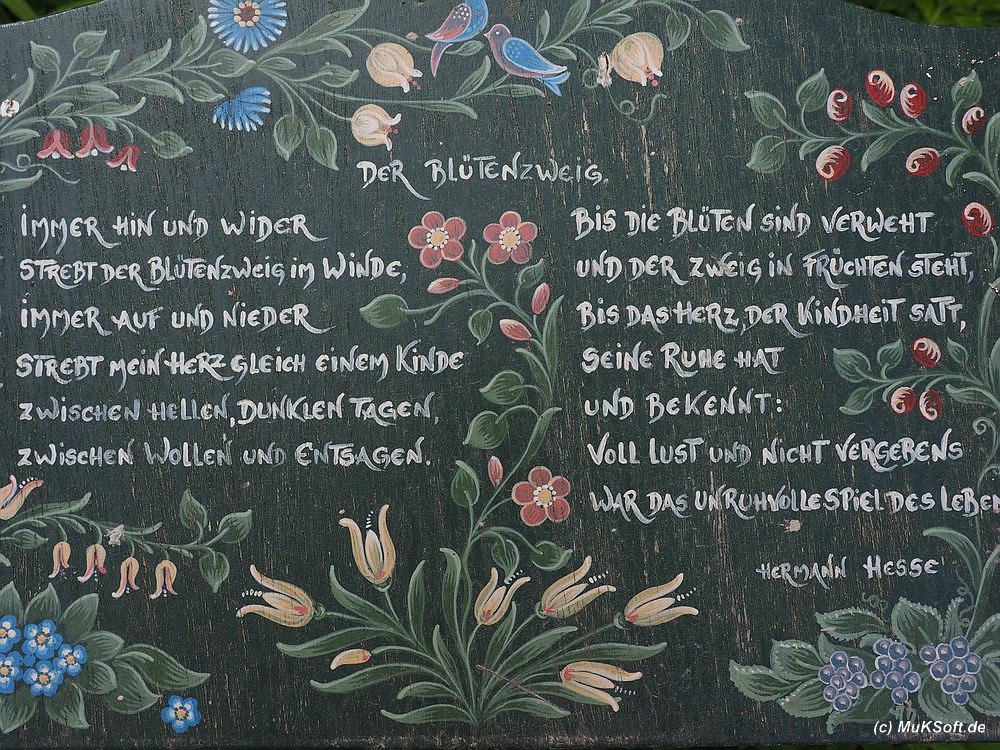 DER BLÜTENZWEIG.
IMMER HIN UND WIDER
STREBT DER BLÜTENZWEIG IM WINDE,
IMMER AUF UND NIEDER
STREBT MEIN HERZ GLEICH EINEM KINDE
ZWISCHEN HELLEN, DUNKLEN TAGEN,
ZWISCHEN WOLLEN UND ENTSAGEN.
BIS DIE BLÜTEN SIND VERWEHT
UND DER ZWEIG IN FRÜCHTEN STEHT,
BIS DAS HERZ, DER KINDHEIT SATT,
SEINE RUHE HAT
UND BEKENNT:
VOLL LUST UND NICHT VERGEBENS
WAR DAS UNRUHVOLLE SPIEL DES LEBE
HERMANN HESSE
(c) MuKSoft.de